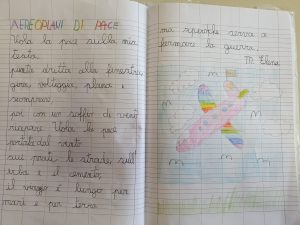 AEREOPLANI DI PACE
Vola la pace sulla mia
testa,
punta dritta alla finestra
gira, volteggia, plana e
sempre
poi con un soffio di vento
riappare. Vola la pace
portata dal vento
sui prati le strade, sull'
e il cemento,
il viaggio è lungo per
mare e per terra
ma saprebbe serva a
fermare la guerra.
M. Elena